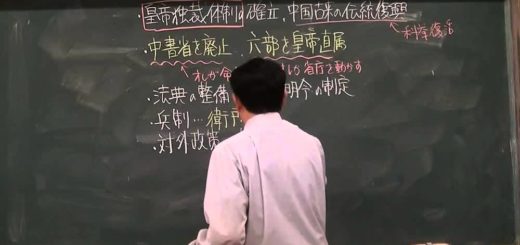 ・皇帝独裁体制の確立、中国古来の伝統復興
科挙復活
中書省を廃止 六部を皇帝直属
省庁を動かす
・法典の整備 明令の制定
・兵制…衛戸
・対外政策